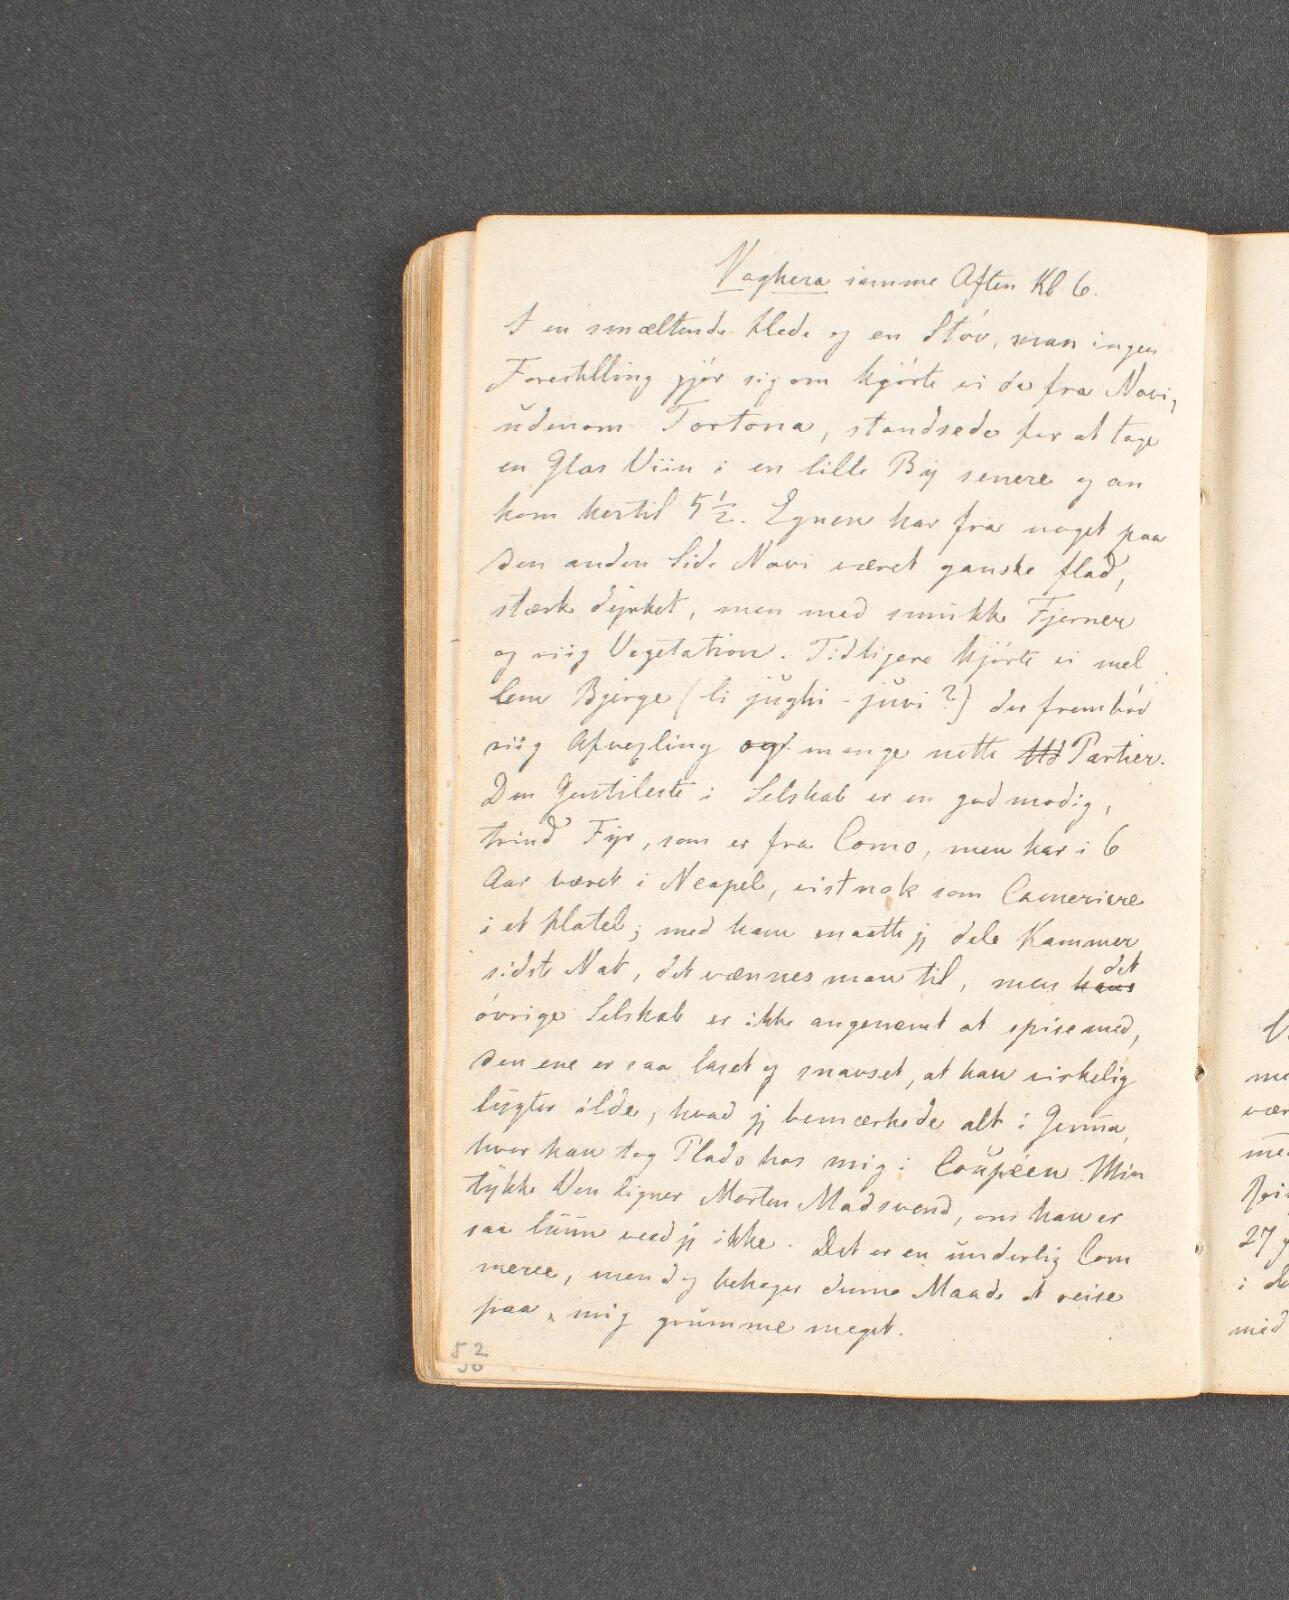 Voghera samme Aften Kl 6.
I en smæltende Hede og en Støv, man ingen
Forestilling gjør sig om kjørte vi da fra Novi,
udenom Tortona, standsede for at tage
en Glas Viin i en lille By senere og an
kom hertil 5½. Egnen har fra noget paa
den anden Side Novi været ganske flad,
stærk dyrket, men med smukke Fjerner
og riig Vegetation. Tidligere kjørte vi mel
lem Bjerge (li jughi - juvi?) der frembød
riig Afvexling og mange nette Partier.
Den Gentileste i Selskab er en godmodig,
trind Fyr, som er fra Como, men har i 6
Aar været i Neapel, vistnok som Cameriere
i et Hotel; med ham maatte jg dele Kammer
sidste Nat, det vænnes man til, men hans det
øvrige Selskab er ikke angenemt at spise med,
den ene er saa laset og snavset, at han virkelig
lugter ilde, hvad jg bemærkede alt i Genua,
hvor han tog Plads hos mig i Coupéen. Min
tykke Ven ligner Morten Madsvend, om han er
saa luun veed jg ikke. Det er en underlig Com
merce, men dog behager denne Maade at reise
paa, mig grumme meget.
52
50
27
i
med